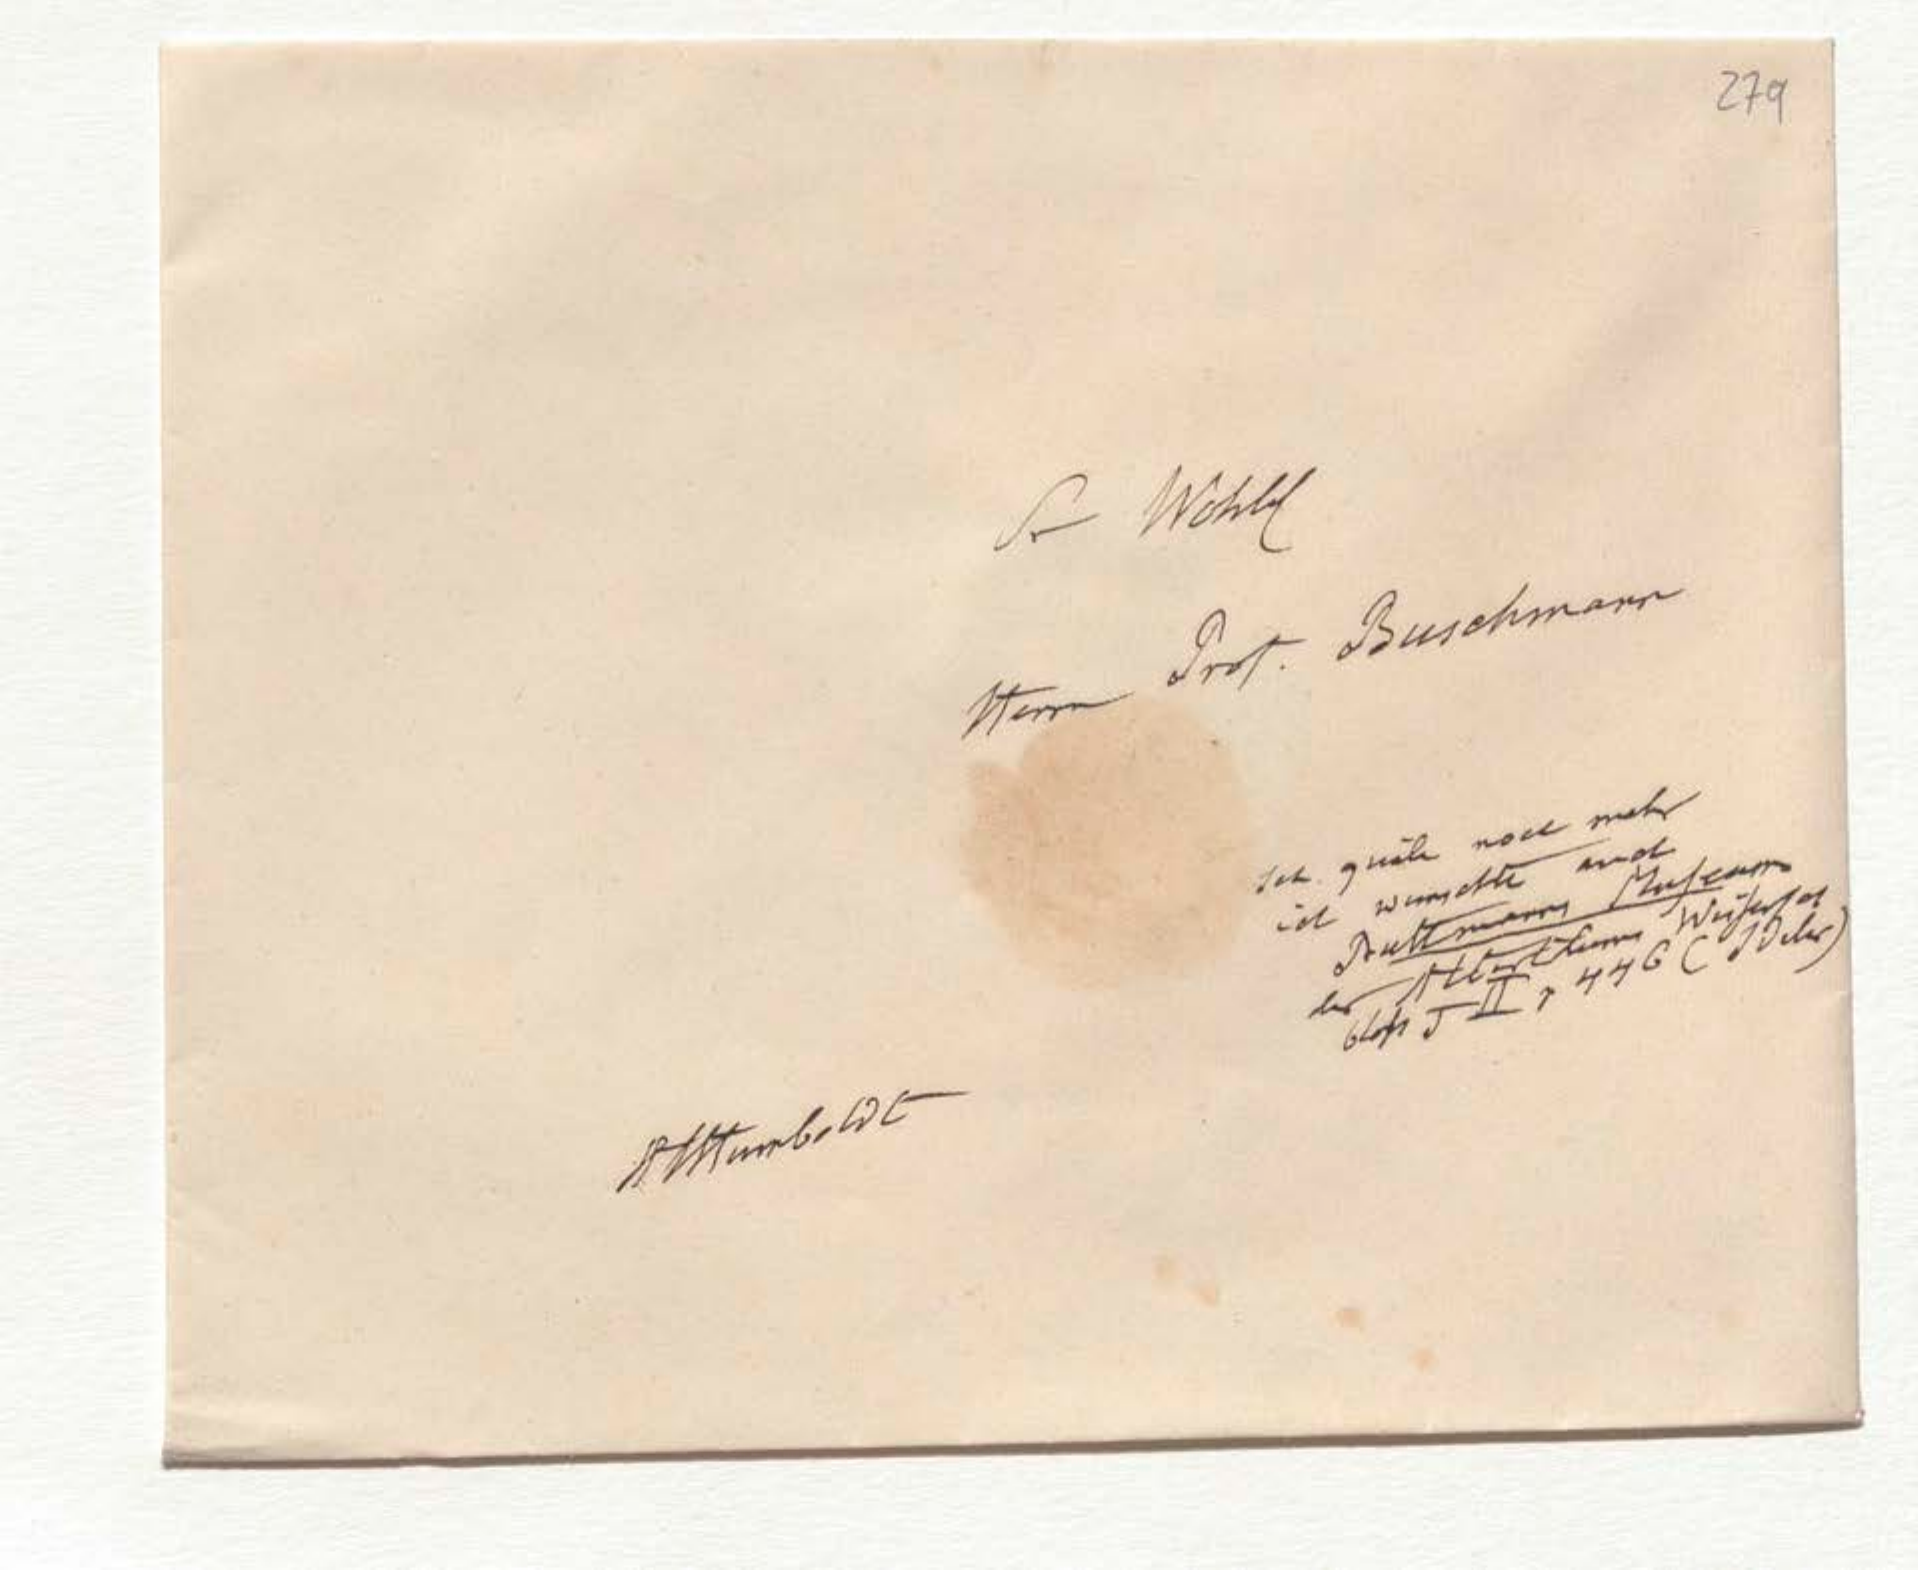 279
Sr Wohlg
Herrn Prof. Buschmann
Ich quäle noch mehr
ich wünschte auch
Buttmanns Museum
der Alterthums Wissenschaft
bloss T II p 446 (Ideler)
AHumboldt